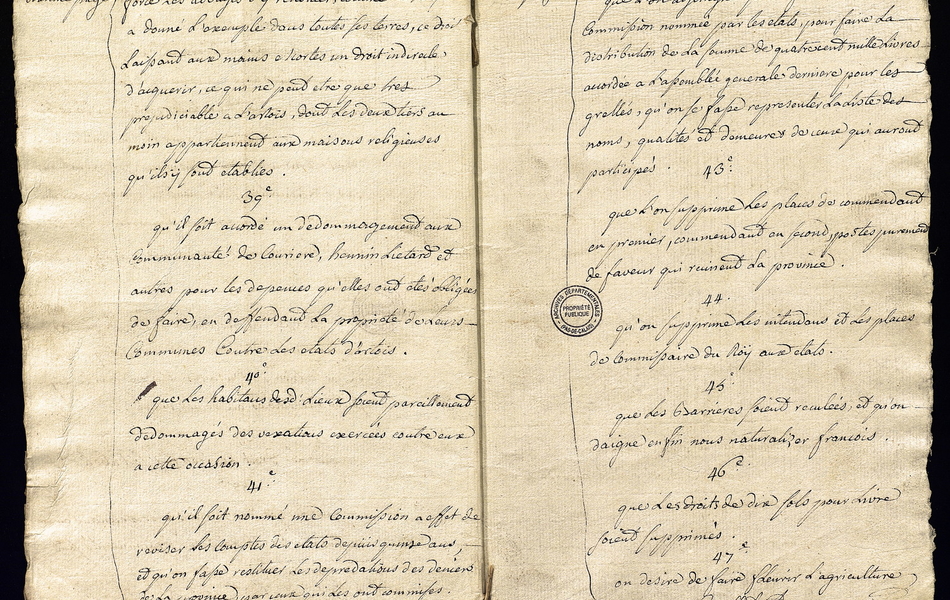 a donné l'exemple dans toutes ses terres, ce droit
Laissant aux mains mortes un droit indirecte
d'acquerir, ce qui ne peut etre que tres
prejudiciable a L'artois, dont Les deux tiers au
moin appartiennent aux maisons religieuses
qu'ils y sont etablies .
39e
qu'il soit acordé un dedommagement aux
communauté de Couriere, hennin Lietard et
autres pour les depences qu'elles ont étés obligées
de faire, en deffendant La propriété de Leurs
Communes Contre Les etats d'artois .
40e
que Les habitans desd. Lieux soient pareillement
dedommagés des vexations exercées contre eux
a cette occasion .
41e
qu'il soit nommé une Commission a effet de
reviser Les comptes des etats depuis quinze ans,
et qu'on fasse restituer Les depredations des deniers
de La province par ceux qui Les ont commises.
Commission nommée par Les etats, pour faire La
distribution de La somme de quatre cent mille Livres
acordée a L'assemblée generale derniere pour les
grelles, qu'on se fasse representer La Liste des
noms, qualités et demeures de ceux qui auront
participés .
43e
que L'on supprime Les places de commendant
en premier, commendant en second, postes purement
de faveur qui ruinent La province .
ARCHIVES DÉPARTEMENTALES
PROPRIÉTÉ
PUBLIQUE
(PAS-DE-CALAIS)
44.
qu'on supprime Les intendans et Les places
de Commissaire du Roÿ aux etats.
45e
que Les Barrieres soient reculées, et qu'on
daigne enfin nous naturaliser francois .
46e
que Les droits de dix sols pour Livre
soient supprimés .
47e
on desire de faire fleurir L'agriculture